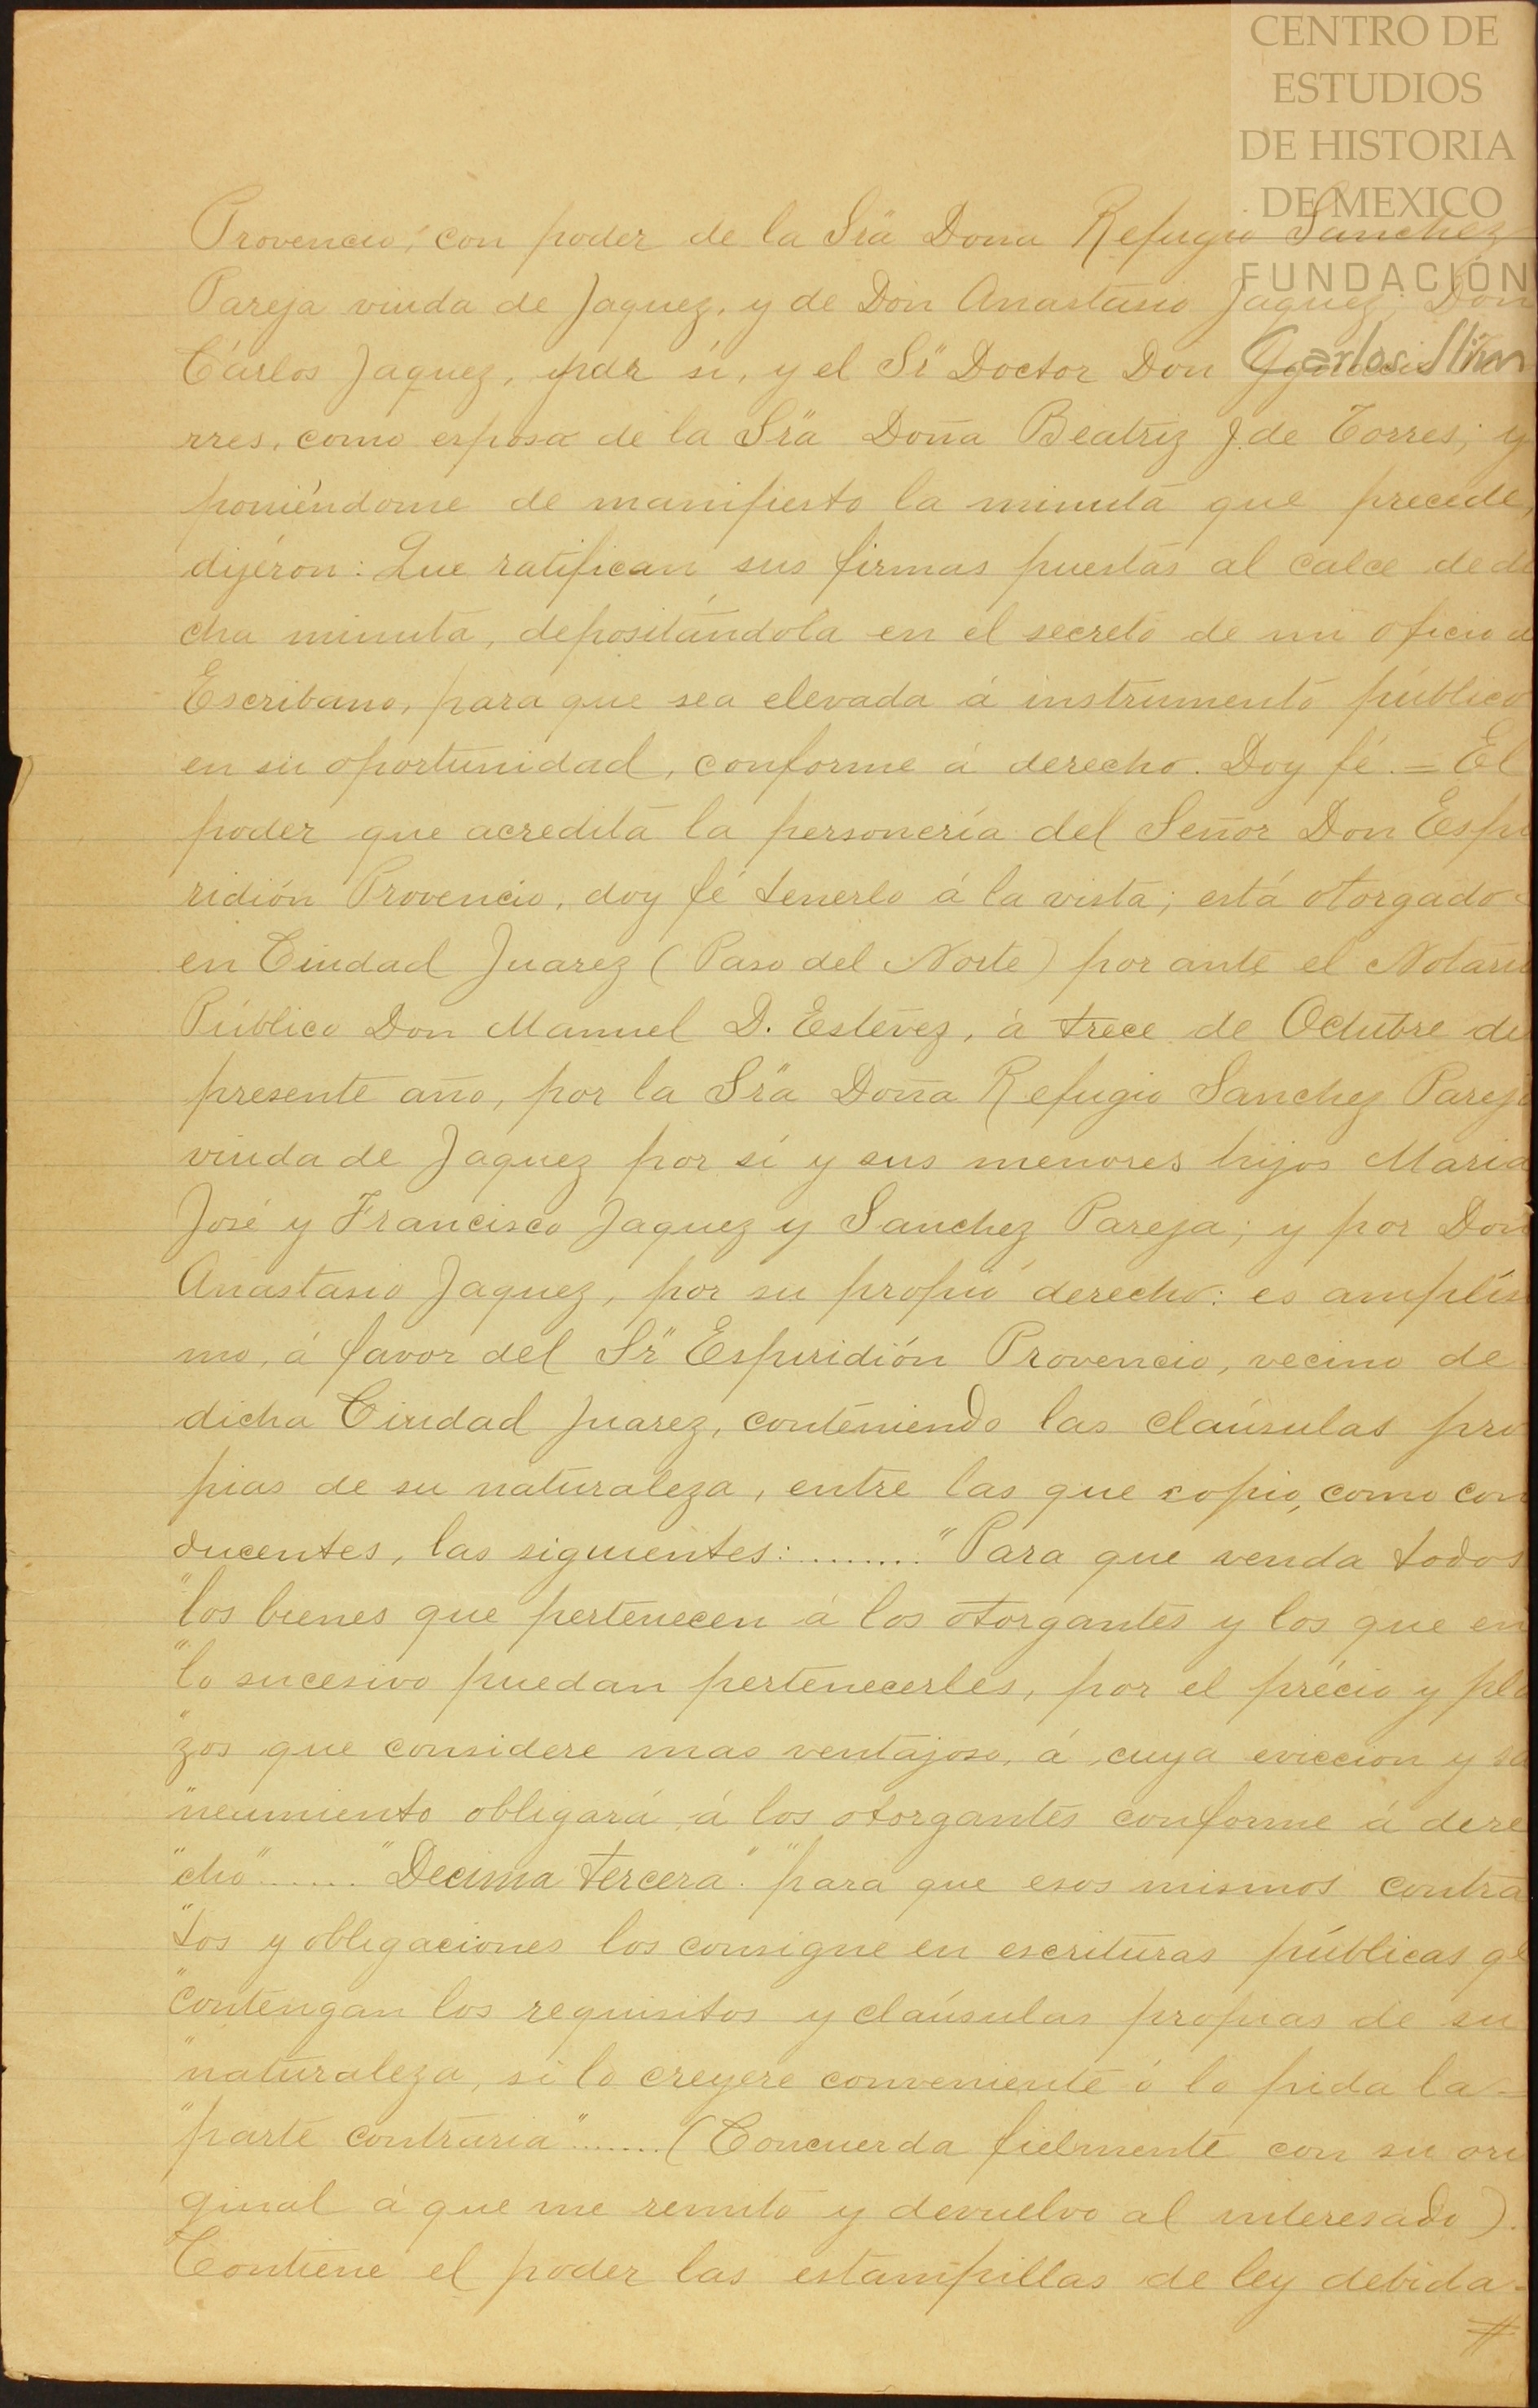 CENTRO DE
ESTUDIOS
DE HISTORIA
DE MEXICO
FUNDACIÓN
Carlos Slim
Provencio, con poder de la Sra Doña Refugio Sanchez
Pareja viuda de Jaquez, y de Don Anastasio Jaquez; Don
Cárlos Jaquez, por sí, y el Sr Doctor Don
rres, como esposo de la Sra Doña Beatriz J. de Torres; y
poniéndome de manifiesto la minuta que precede,
dijéron: Que ratifican sus firmas puestas al calce de di
cha minuta, depositándola en el secreto de mi oficio d
Escribano, para que sea elevada á instrumento público
en su oportunidad, conforme á derecho. Doy fé. = El
poder que acredita la personería del Señor Don Espi
ridión Provencio, doy fé tenerlo á la vista; está otorgado
en Ciudad Juarez (Paso del Norte) por ante el Notario
Público Don Manuel D. Estévez, á trece de Octubre de
presente año, por la Sra Doña Refugio Sanchez Pareja
viuda de Jaquez por sí y sus menores hijos Maria
José y Francisco Jaquez y Sanchez Pareja; y por Don
Anastasio Jaquez, por su propio derecho: es amplísi
mo, á favor del Sr Espiridión Provencio, vecino de
dicha Ciudad Juarez, conteniendo las claúsulas pro
pias de su naturaleza, entre las que copio, como con
ducentes, las siguientes: ........ "Para que venda todos
"los bienes que pertenecen á los otorgantes y los que en
"lo sucesivo puedan pertenecerles, por el précio y pla
"zos que considere mas ventajoso, á cuya eviccion y sa
"neamiento obligará á los otorgantes conforme á dere
"cho" ...... "Decima tercera" "para que esos mismos contra
"tos y obligaciones los consigne en escrituras públicas qe
"contengan los requisitos y claúsulas propias de su
"naturaleza, si lo creyere conveniente ó lo pida la
"parte contraria" ....... (Concuerda fielmente con su ori
ginal á que me remito y devuelvo al interesado).
Contiene el poder las estampillas de ley debida-